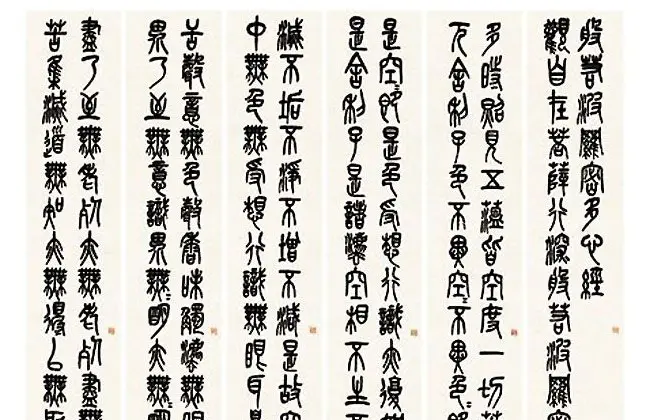 般若波羅密多心經
觀自在菩薩行深般若波羅密
多時照見五蘊皆空度一切苦
厄舍利子色不異空=不異色=即
是空=即是色受想行識亦復如
是舍利子是諸灋空相不生不
滅不垢不淨不增不減是故空
中無色無受想行識無眼耳鼻
舌身意無色聲香味觸灋無眼
界乃至無意識界無=明亦無=明
盡乃至無老死亦無老死盡無
苦集滅道無智亦無得以無所